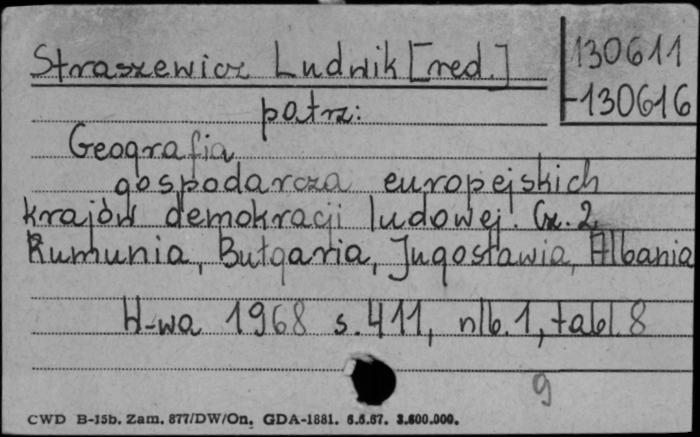 Straszewicz Ludwik [red.]
130611
-130616
patrz:
Geografia
gospodarcza europejskich
krajów demokracji ludowej. Cz. 2
Rumunia, Bułgaria, Jugosławia, Albania
W-wa 1968 s. 411, nlb. 1, tabl. 8
9
CWD B-15b. Zam. 877/DW/On. GDA-1881. 6.6.67. 3.600.000.